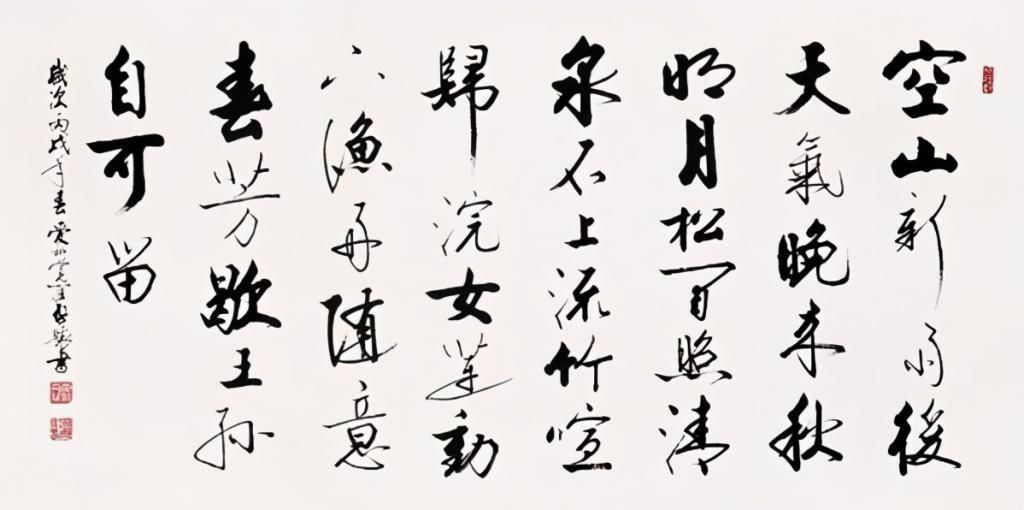 空山新雨後
天氣晚来秋
明月松間照清
泉石上流竹喧
歸浣女蓮動
下漁舟隨意
春芳歇王孫
自可留
歲次丙戌年春書